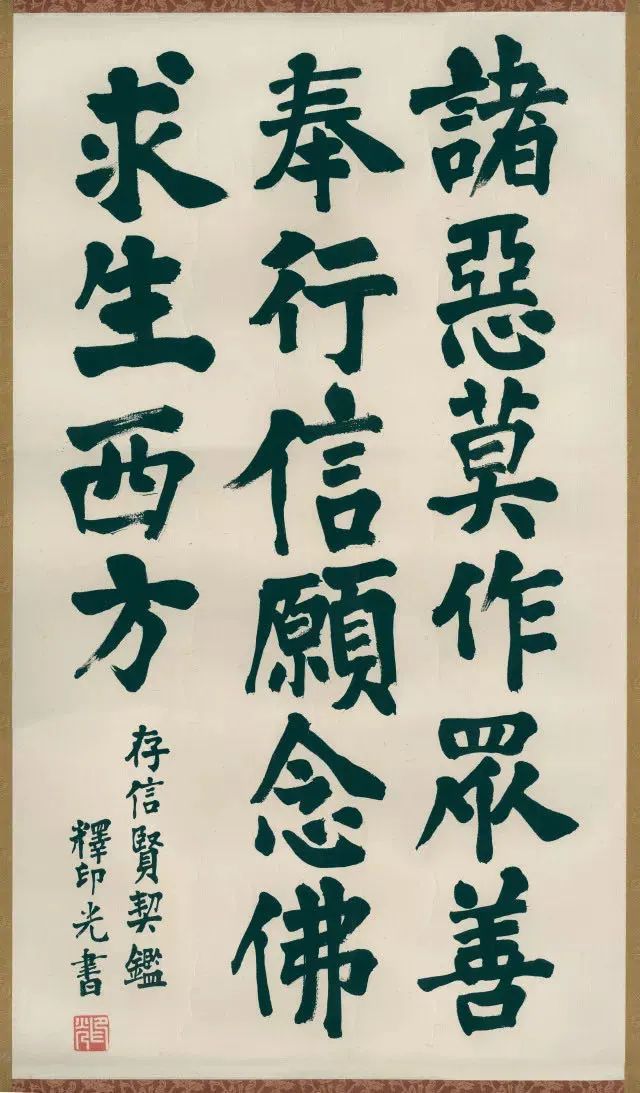 諸惡莫作眾善
奉行信願念佛
求生西方
存信賢契鑑
釋印光書
印光